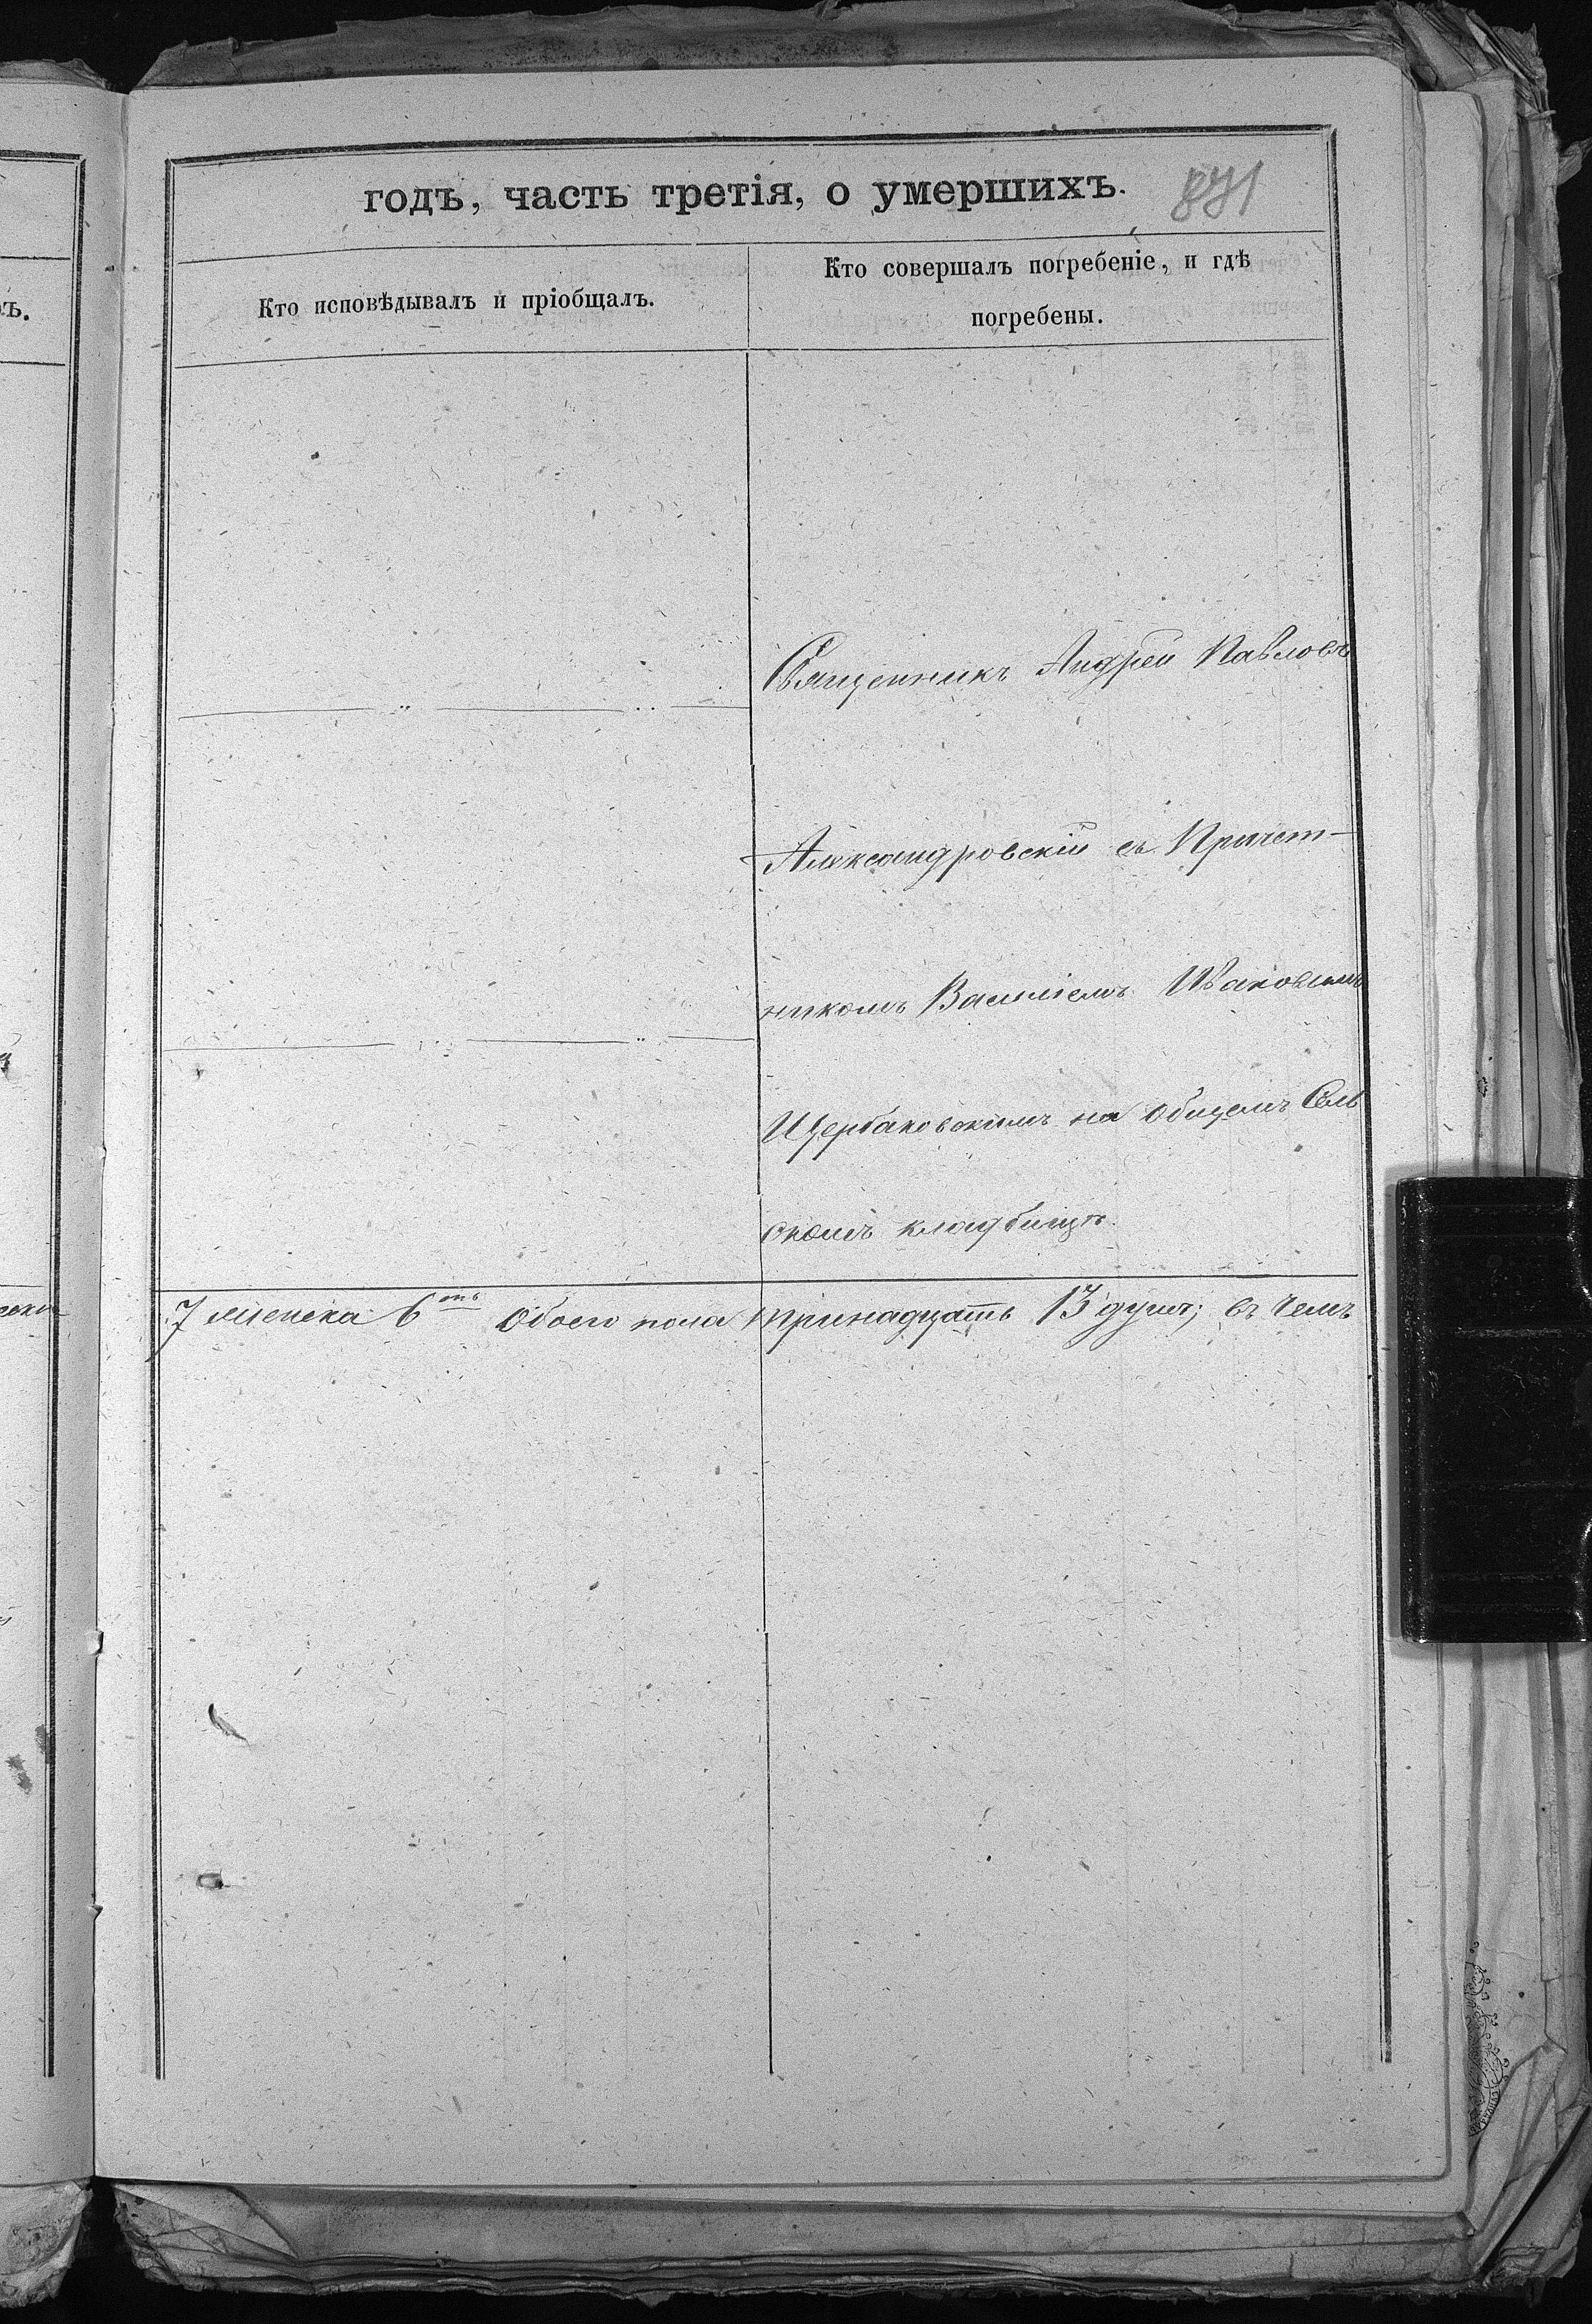 годъ, часть третія, о умершихъ. 871
Кто исповѣдывалъ и пріобщалъ.
Кто совершалъ погребеніе, и гдѣ
погребены.
Священникъ Андрей Павловъ
Александровскій съ Причет-
никомъ Василіемъ Ивановымъ
Щербаковскимъ на общемъ Сель
скомъ кладбищѣ.
7 женска 6ть Обоего пола тринадцать 13 душъ; въ чемъ